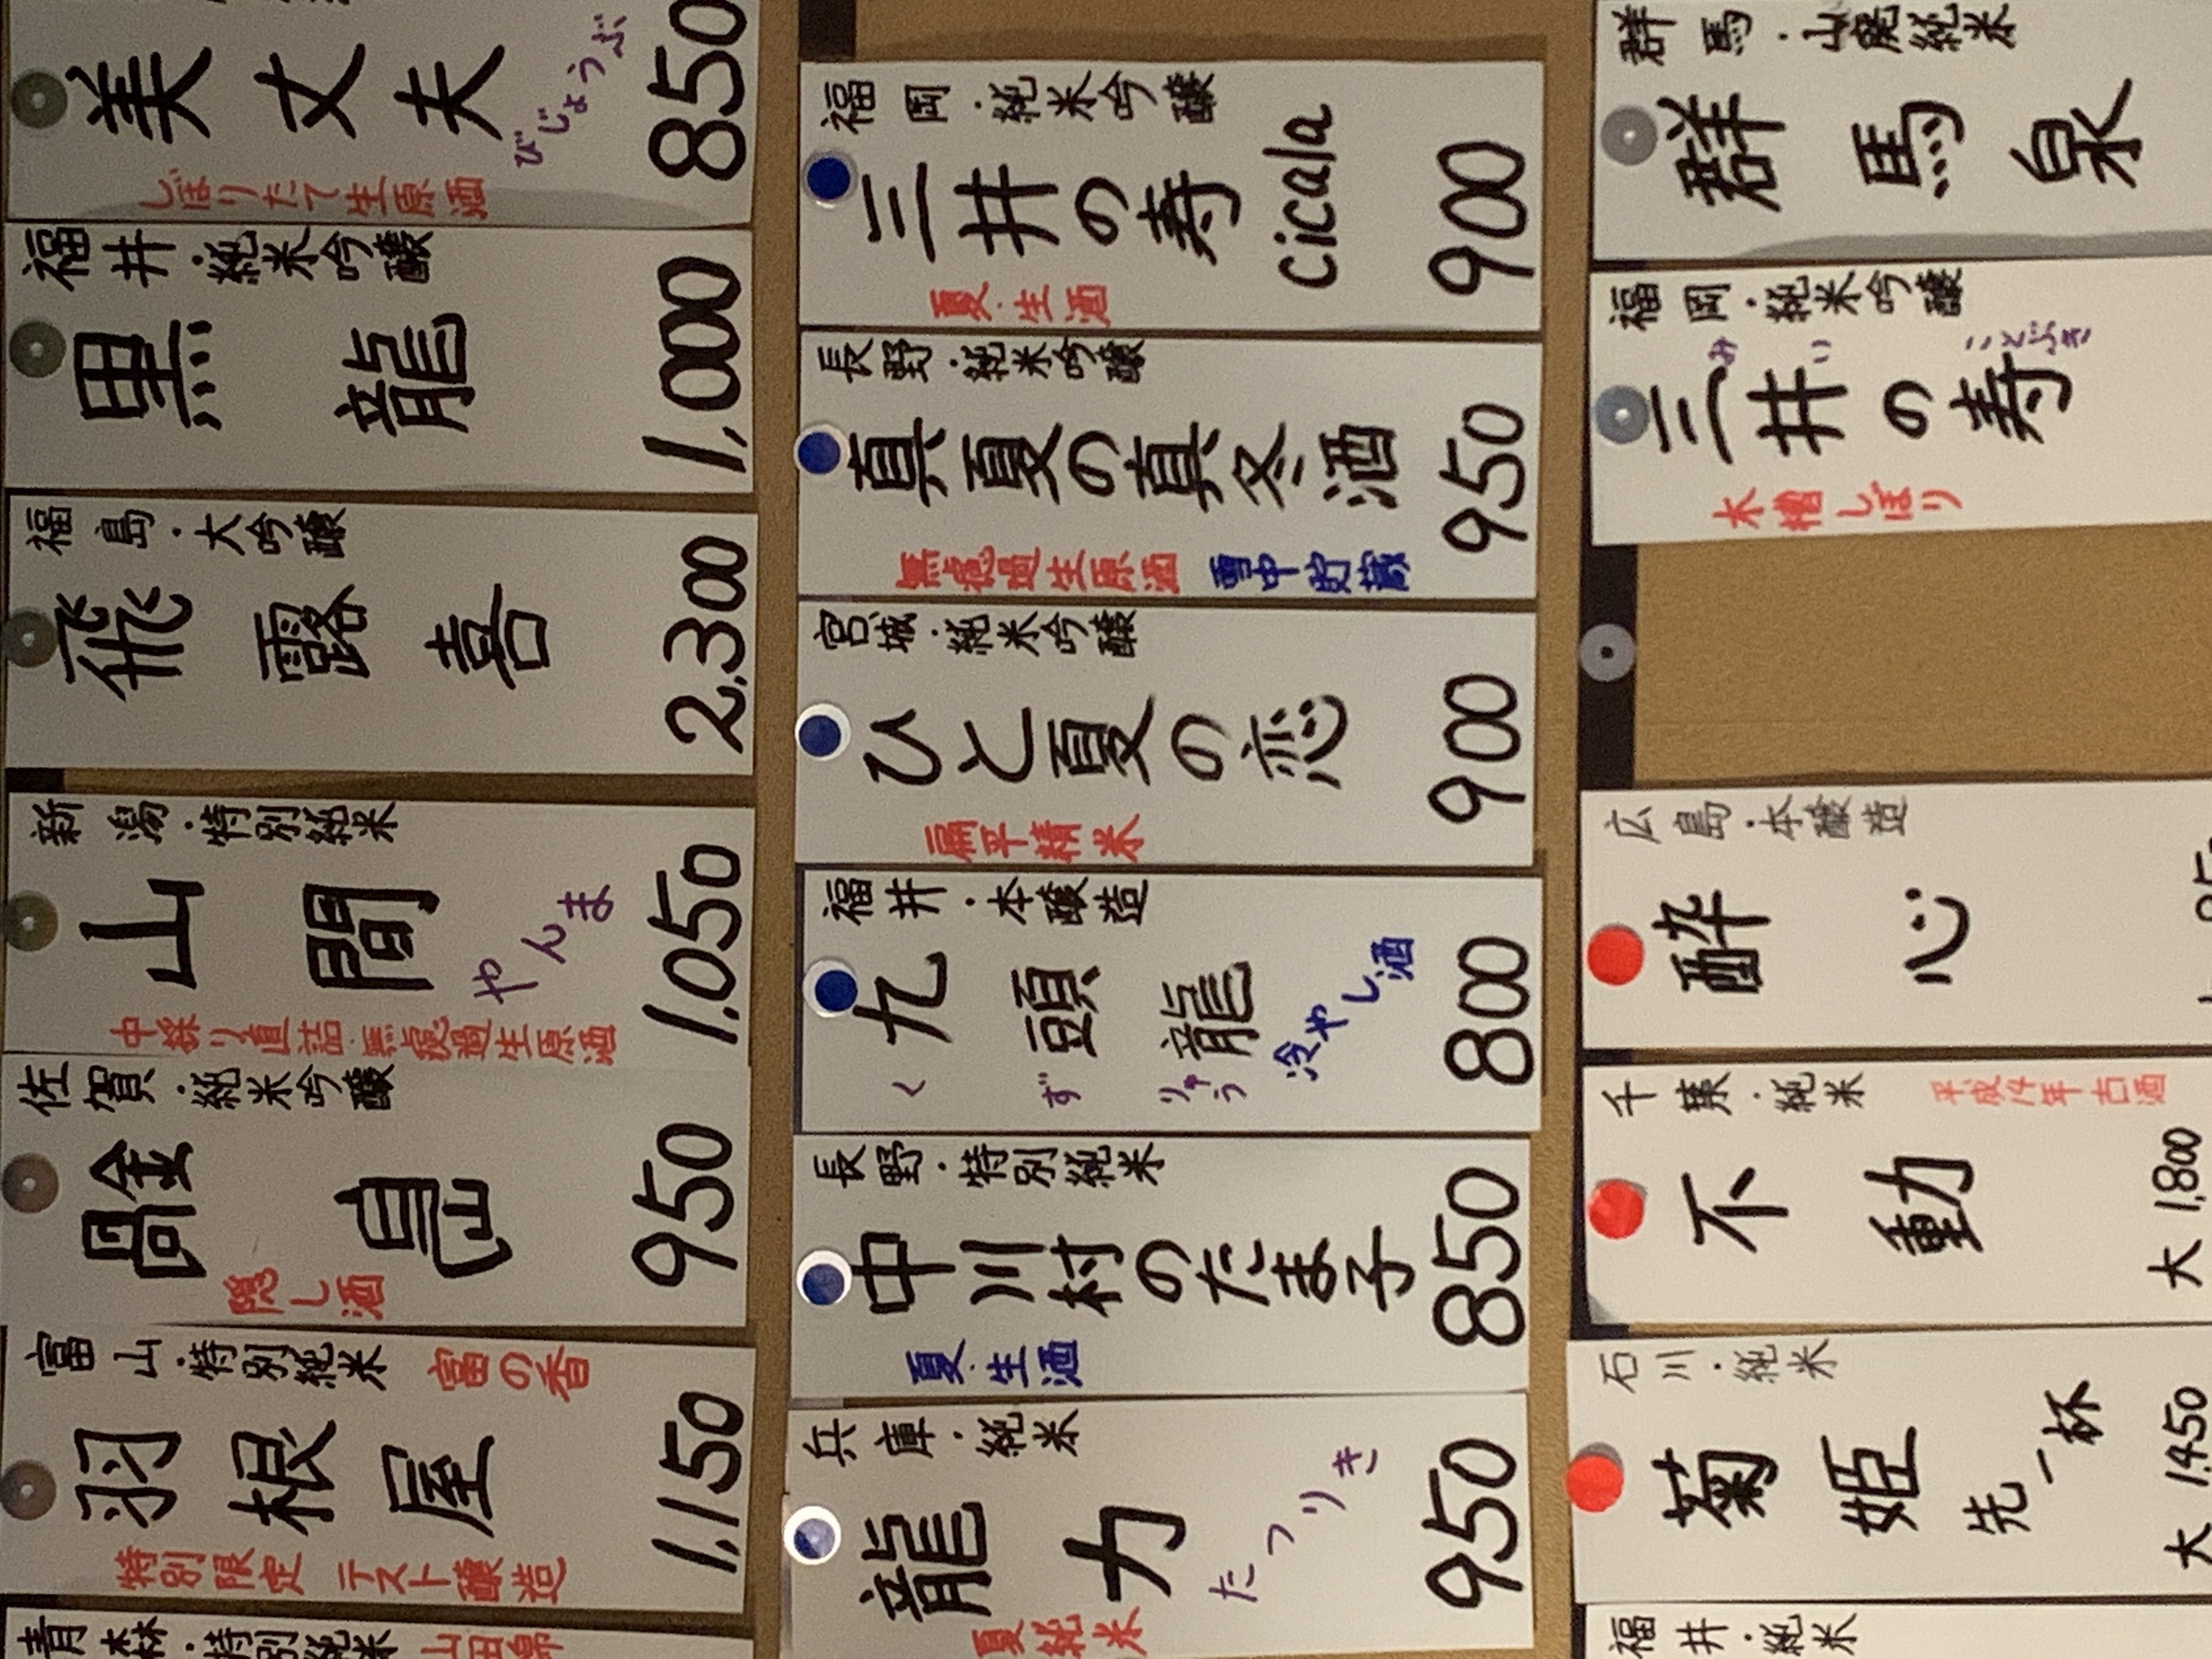 美丈夫
びじょうぶ
しぼりたて生原酒
850
福井・純米吟醸
黒龍
1,000
福島・大吟醸
飛露喜
2,300
新潟・特別純米
山間
やんま
中採り直詰・無濾過生原酒
1,050
佐賀・純米吟醸
隠し酒
950
富山・特別純米
富の香
羽根屋
特別限定 テスト醸造
1,150
青森・特別純米
山田錦
福岡・純米吟醸
三井の寿
cicala
夏・生酒
900
長野・純米吟醸
真夏の真冬酒
無濾過生原酒
雪中貯蔵
950
宮城・純米吟醸
ひと夏の恋
扁平精米
900
福井・本醸造
九頭龍
くずりゅう
冷やし酒
800
長野・特別純米
中川村のたま子
夏・生酒
850
兵庫・純米
龍力
たつりき
夏純米
950
群馬・山廃純米
群馬泉
福岡・純米吟醸
三井の寿
みい ことぶき
木槽しぼり
広島・本醸造
酔心
千葉・純米
平成14年 古酒
不動
大 1,800
石川・純米
菊姫
先一杯
大 1,450
福井・純米